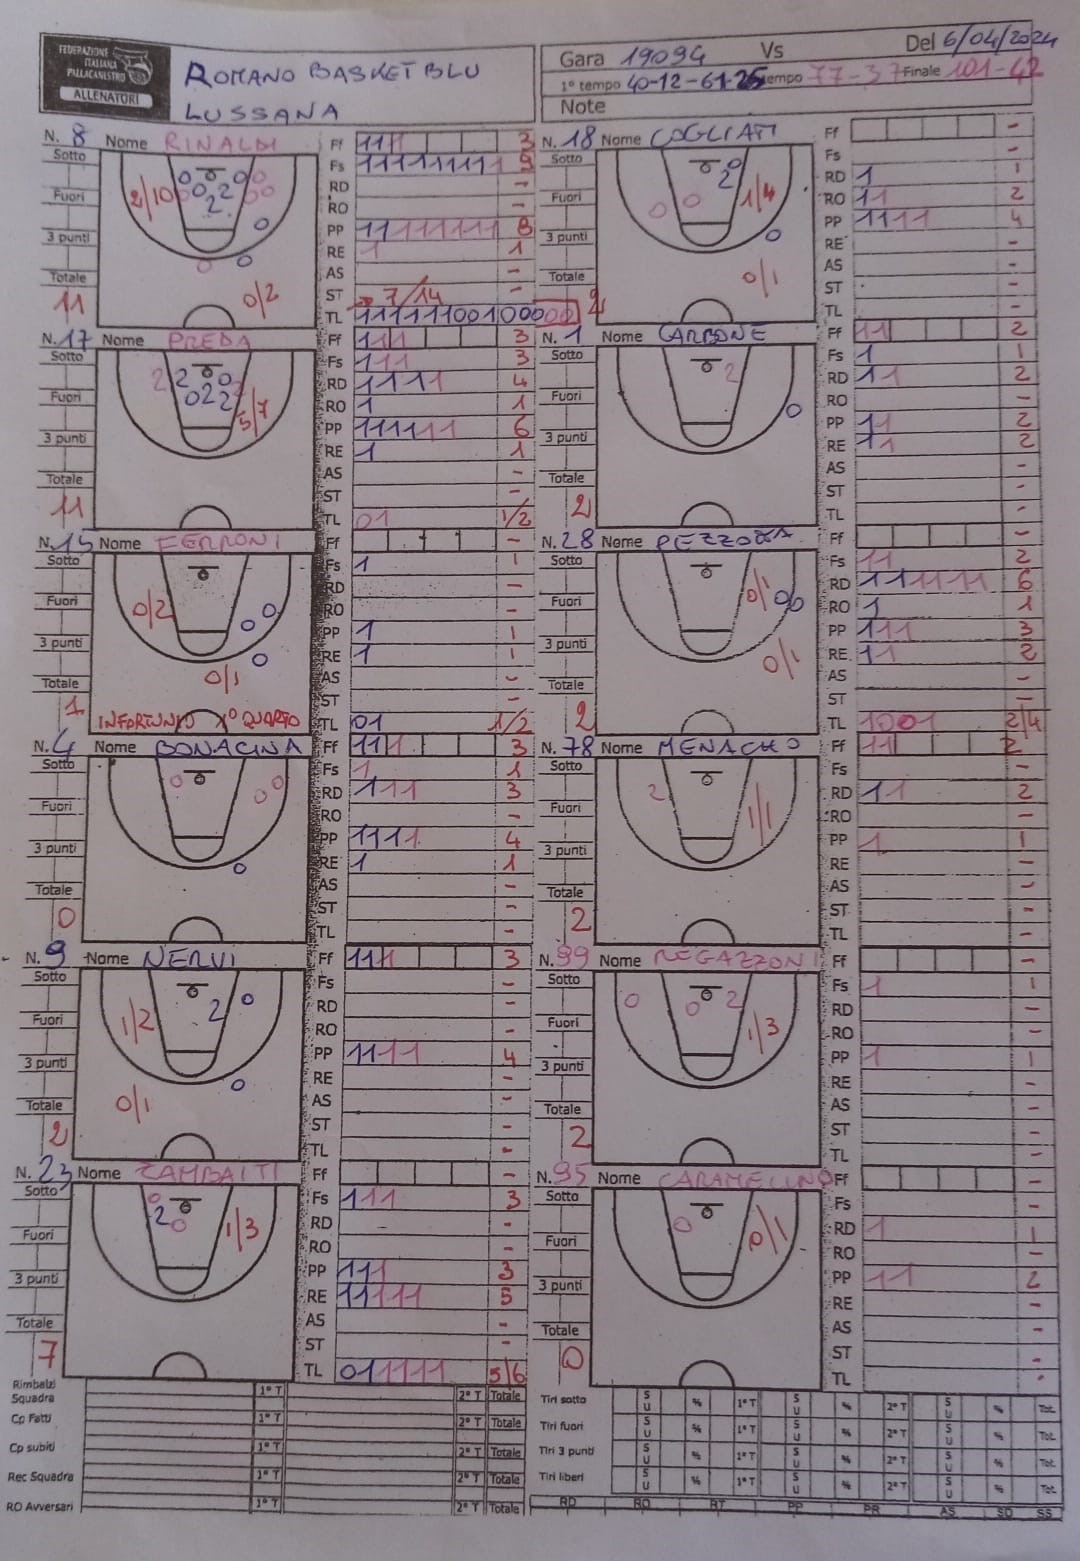 FEDERAZIONE
ITALIANA
PALLACANESTRO
ALLENATORI
ROMANO BASKET BLU
LUSSANA
Gara 19094 Vs Del 6/04/2024
1º tempo 40-12-61-25 tempo 77-37 Finale 101-42
Note
N. 8 Nome RINALDI
Sotto
Fuori
3 punti
Totale
11
2/10
0/2
Ff 111 3
Fs 111111111 9
RD -
RO -
PP 11111111 8
RE 1 1
AS -
ST → 7/14 -
TL 11111100100000
N. 18 Nome COGLIATI
Sotto
Fuori
3 punti
Totale
2
1/4
0/1
Ff -
Fs -
RD 1 1
RO 11 2
PP 1111 4
RE -
AS -
ST -
TL -
N. 17 Nome PREDA
Sotto
Fuori
3 punti
Totale
11
5/7
Ff 111 3
Fs 111 3
RD 1111 4
RO 1 1
PP 111111 6
RE 1 1
AS -
ST -
TL 01 1/2
N. 1 Nome CARBONE
Sotto
Fuori
3 punti
Totale
2
Ff 11 2
Fs 1 1
RD 11 2
RO -
PP 11 2
RE 11 2
AS -
ST -
TL -
N. 15 Nome FERRONI
Sotto
Fuori
3 punti
Totale
1
0/2
0/1
INFORTUNIO 1º QUARTO
Ff -
Fs 1 1
RD -
RO -
PP 1 1
RE 1 1
AS -
ST -
TL 01 1/2
N. 28 Nome PEZZOTTA
Sotto
Fuori
3 punti
Totale
2
0/1
0/1
Ff -
Fs 11 2
RD 111111 6
RO 1 1
PP 111 3
RE 11 2
AS -
ST -
TL 1001 2/4
N. 4 Nome BONACINA
Sotto
Fuori
3 punti
Totale
0
Ff 111 3
Fs 1 1
RD 111 3
RO -
PP 1111 4
RE 1 1
AS -
ST -
TL -
N. 78 Nome MENACHO
Sotto
Fuori
3 punti
Totale
2
1/1
Ff 11 2
Fs -
RD 11 2
RO -
PP 1 1
RE -
AS -
ST -
TL -
N. 9 Nome NERVI
Sotto
Fuori
3 punti
Totale
2
1/2
0/1
Ff 111 3
Fs -
RD -
RO -
PP 1111 4
RE -
AS -
ST -
TL -
N. 99 Nome REGAZZONI
Sotto
Fuori
3 punti
Totale
2
1/3
Ff -
Fs 1 1
RD -
RO -
PP 1 1
RE -
AS -
ST -
TL -
N. 23 Nome ZAMBAITI
Sotto
Fuori
3 punti
Totale
7
1/3
Ff -
Fs 111 3
RD -
RO -
PP 111 3
RE 11111 5
AS -
ST -
TL 011111 5/6
N. 95 Nome CARAMELLINO
Sotto
Fuori
3 punti
Totale
0
0/1
Ff -
Fs -
RD 1 1
RO -
PP 11 2
RE -
AS -
ST -
TL -
Rimbalzi
Squadra 1º T 2º T Totale
Cp Fatti 1º T 2º T Totale
Cp subiti 1º T 2º T Totale
Rec Squadra 1º T 2º T Totale
RO Avversari 1º T 2º T Totale
Tiri sotto S U % 1º T S U % 2º T S U % Tot.
Tiri fuori S U % 1º T S U % 2º T S U % Tot.
Tiri 3 punti S U % 1º T S U % 2º T S U % Tot.
Tiri liberi S U % 1º T S U % 2º T S U % Tot.
RD RO RT PP PR AS SD SS